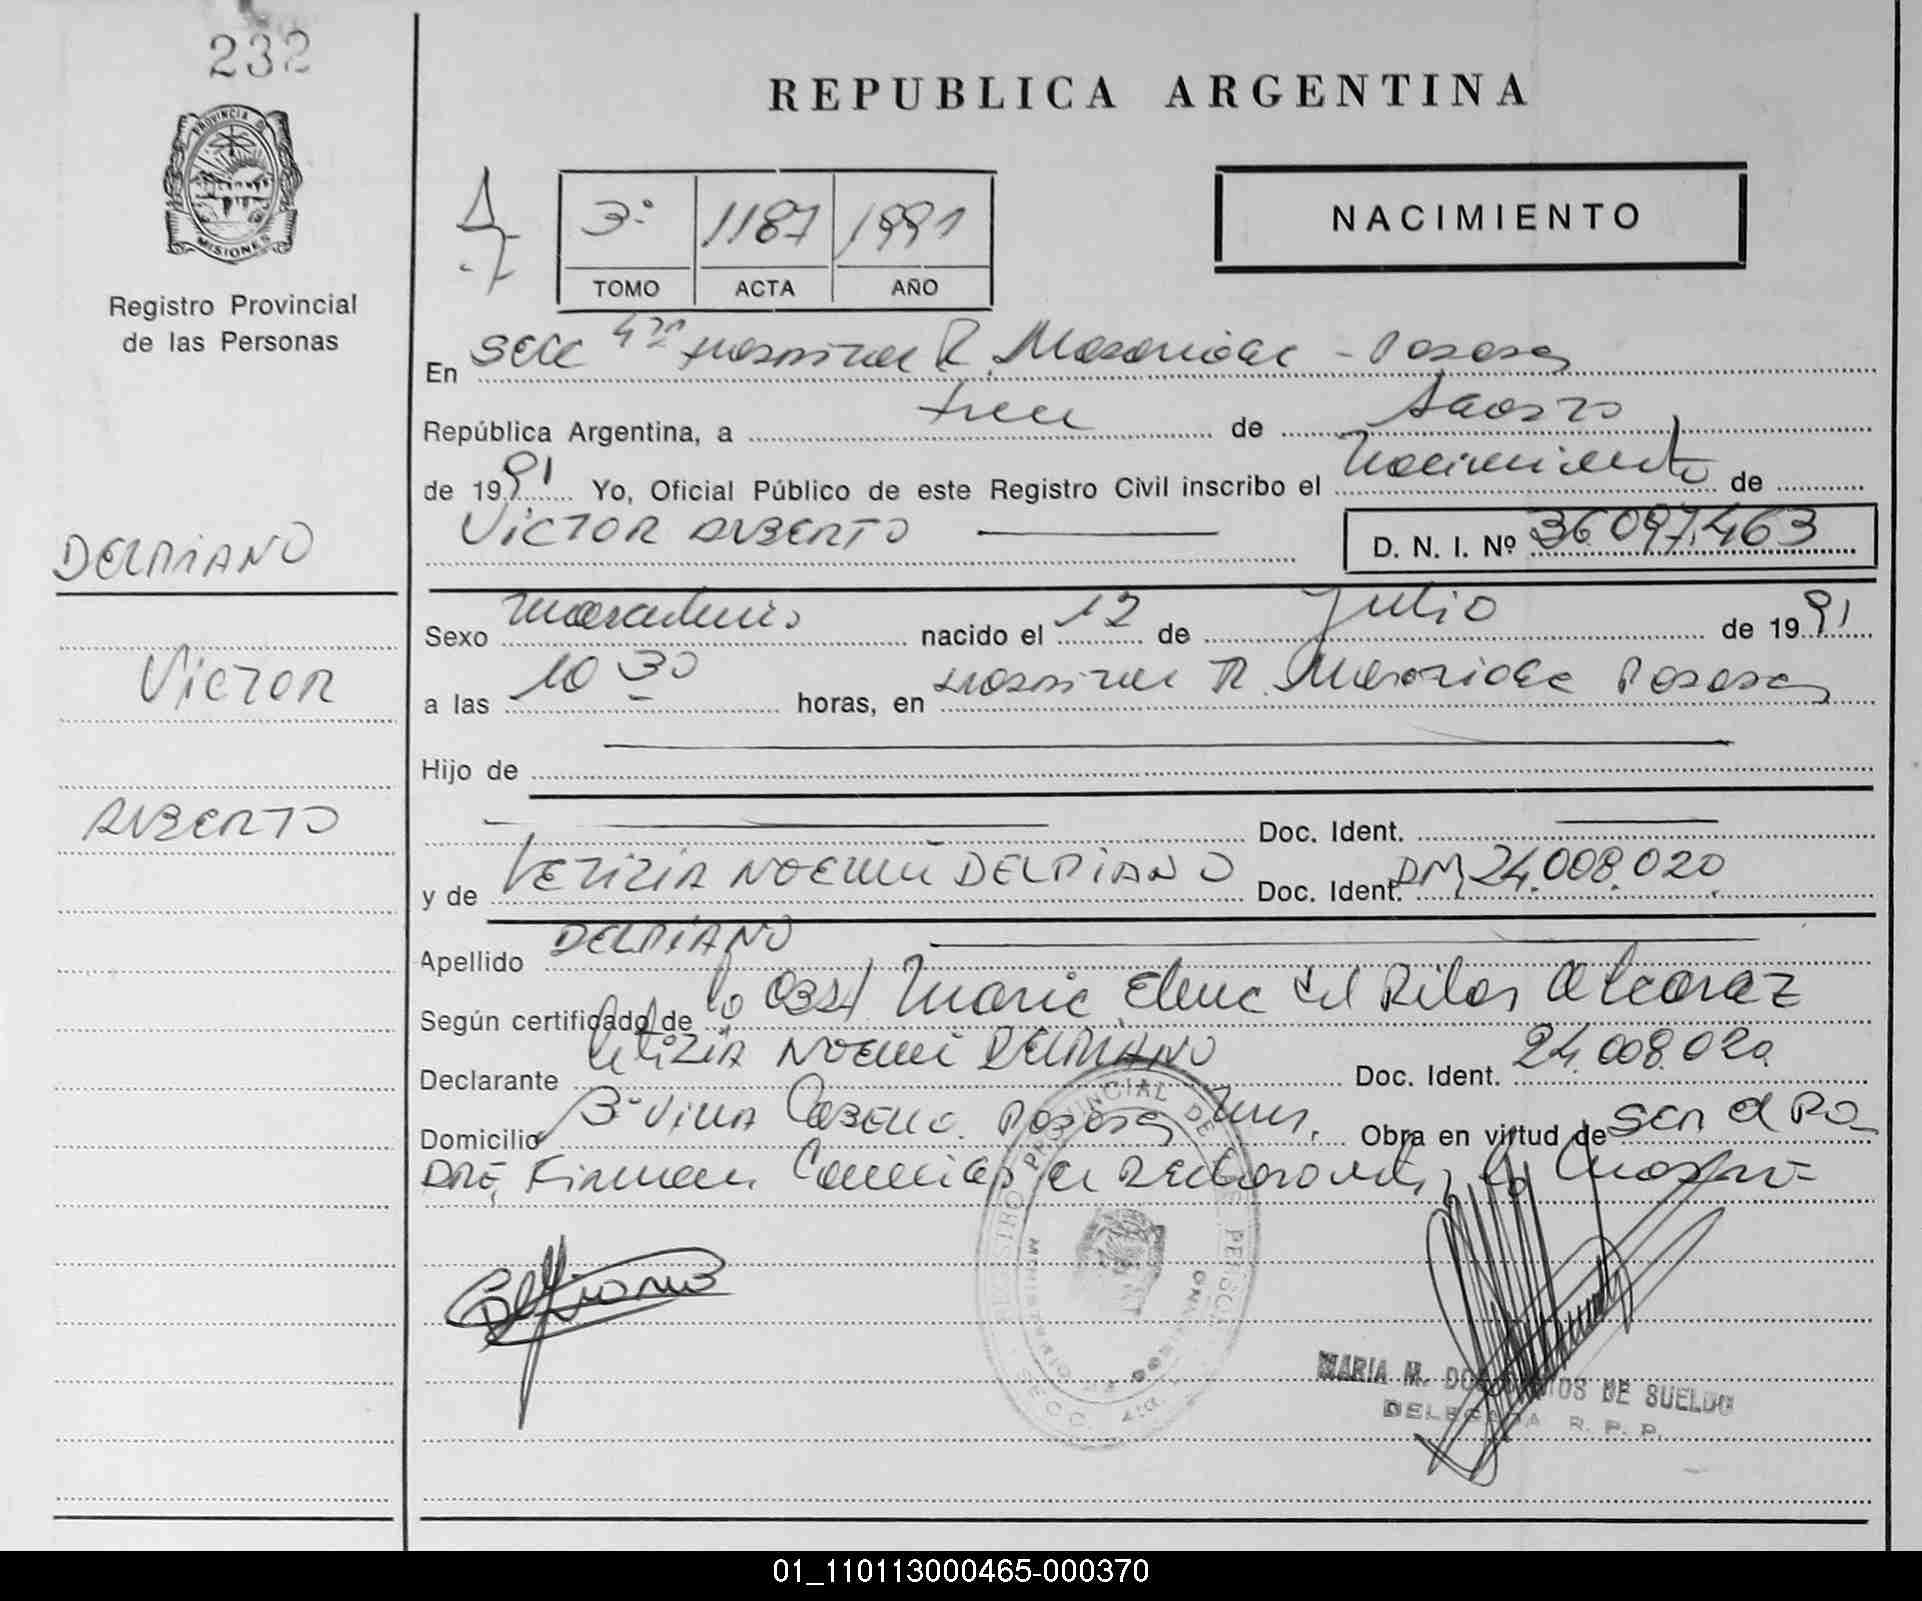 232
REPUBLICA ARGENTINA
PROVINCIA D MISIONES
Registro Provincial
de las Personas
3º 1187 1991
TOMO ACTA AÑO
NACIMIENTO
En Secc 4ta Hospital R. Madariaga - Posadas
República Argentina, a trece de Agosto
de 1991 Yo, Oficial Público de este Registro Civil inscribo el Nacimiento de
VICTOR ALBERTO
D. N. I. Nº 36.097.463
DELPIANO
VICTOR
ALBERTO
Sexo Masculino nacido el 12 de Julio de 1991
a las 10 30 horas, en Hospital R. Madariaga Posadas
Hijo de
Doc. Ident.
y de LETIZIA NOEMI DELPIANO Doc. Ident. DNI 24.008.020
Apellido DELPIANO
Según certificado de la Obst Maria Elena del Pilar Alcaraz
Declarante Letizia NOEMI DELPIANO Doc. Ident. 24.008.020
Domicilio Bº Villa Cabello Posadas Mns. Obra en virtud de ser el PA-
DRE, Firman la declarante
Delpiano
REGISTRO PROVINCIAL DE LAS PERSONAS
MARIA M. DOS SANTOS DE SUELDO
DELEGADA R. P. P.
01_110113000465-000370